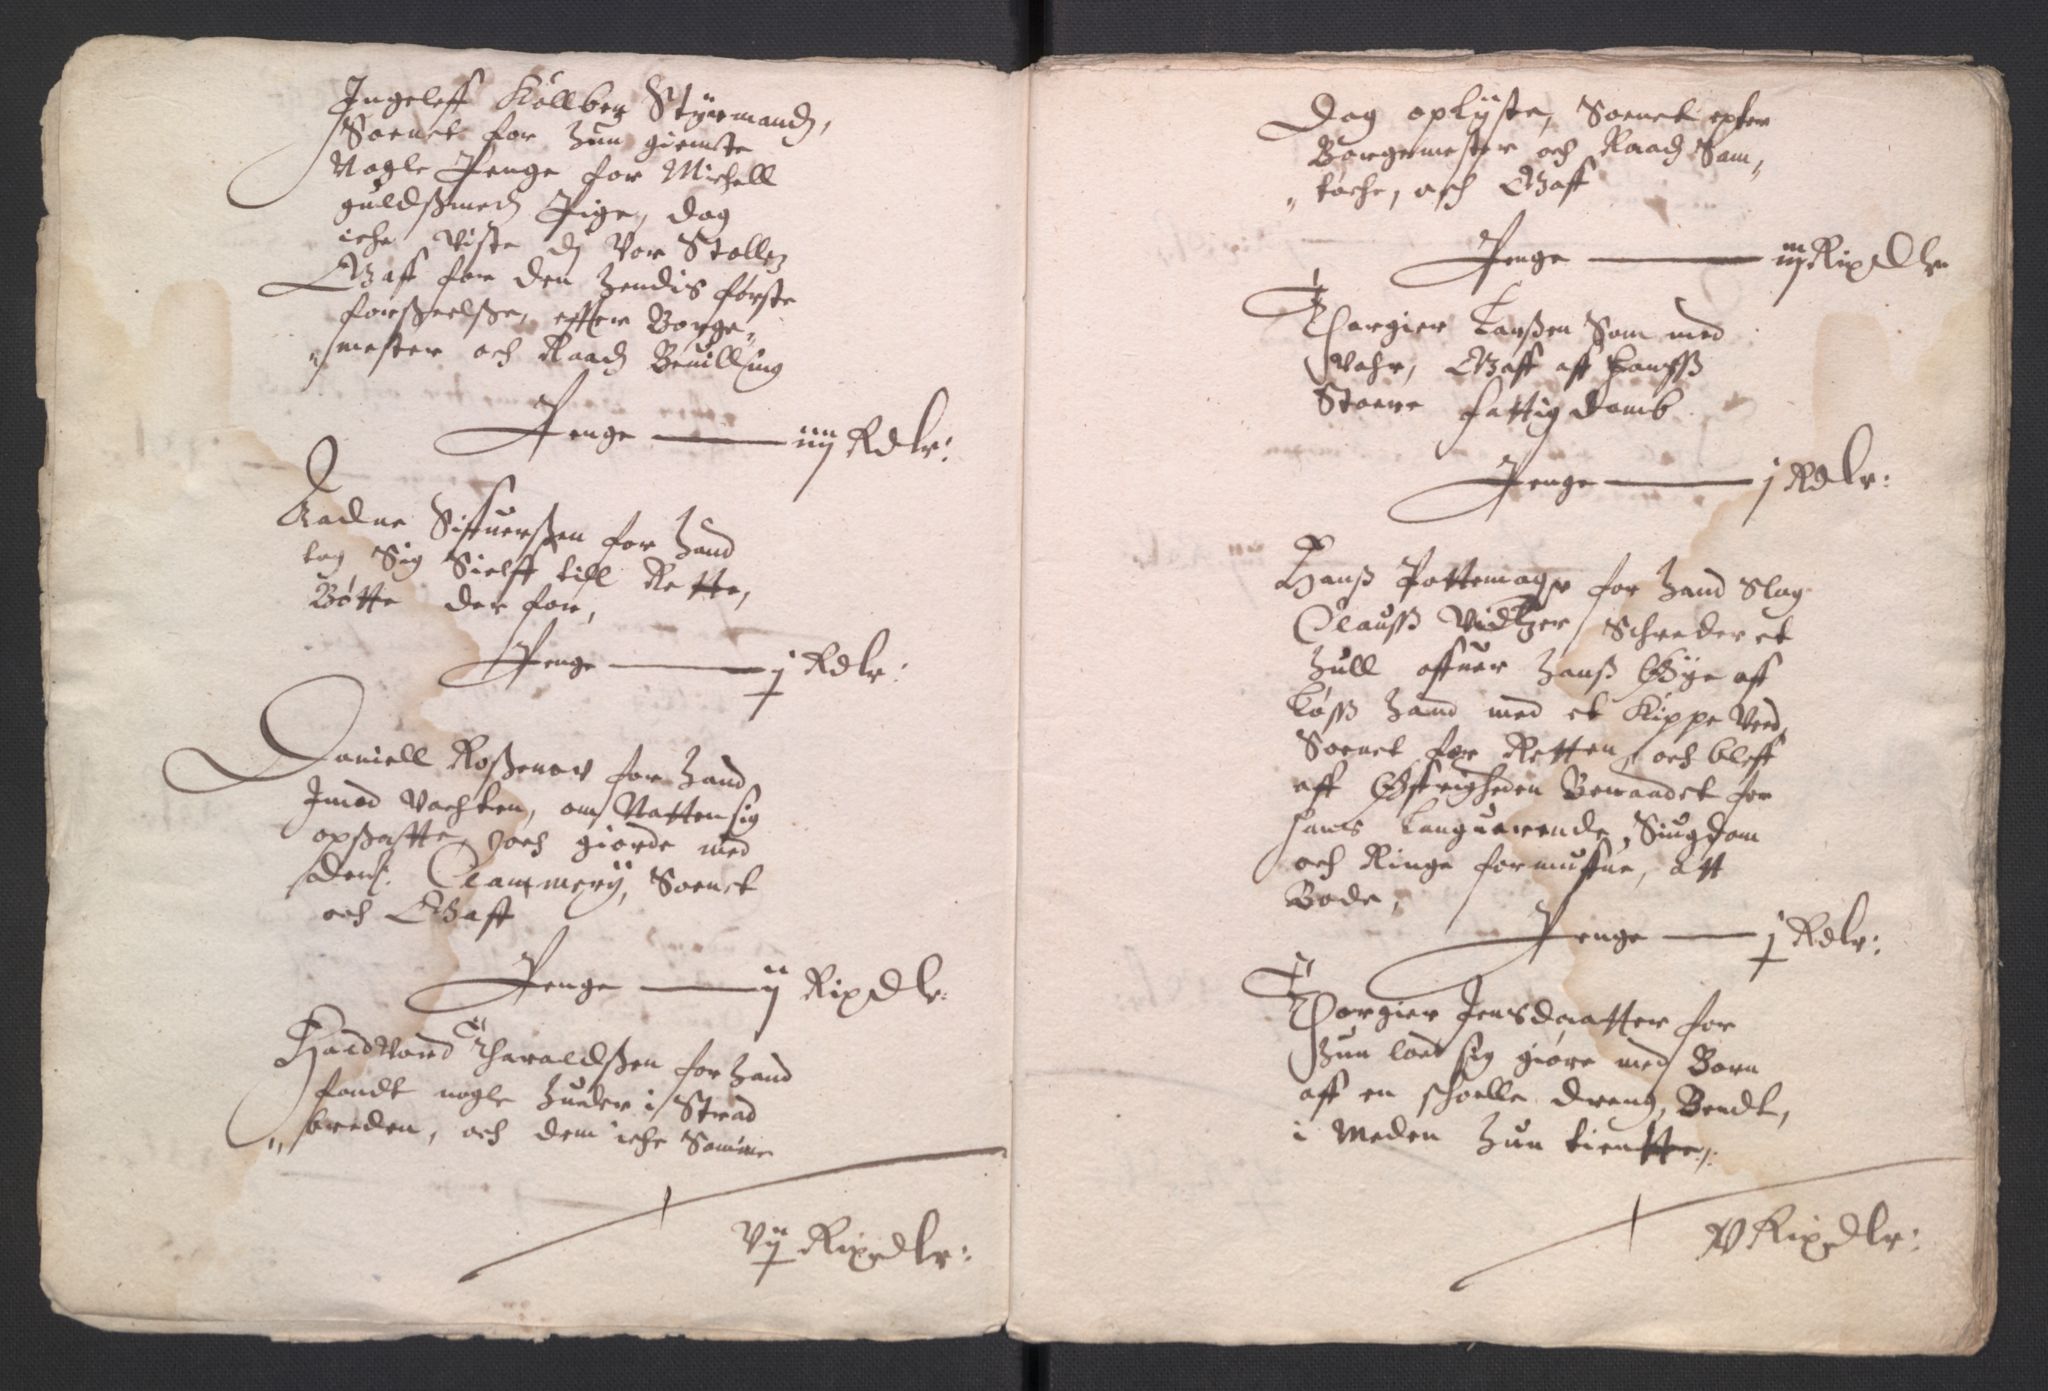 Ingeleff Kôllbers Stÿrmandz,
Soenet for hun giemte
Nogle Penge for Michell
guldßmedz Pige, dog
iche viste dj vor Stollen
Gaff for den hendis første
forßeelße, effter Borge„
„mester och Raadz Beuilling
Penge — iiij Rdlr:
Aadne Siffuerßen for hand
tog Sig Sielff till Rette,
Bøtte der for,
Penge — j Rdlr:
Daniell Roßenow for hand
Imod Vachten, om Natten sig
opsatte, och giorde med
dem Clammerÿ, Soenet
och Gaff
Penge — ij Rixdlr:
Haldvord Tharaldßen for hand
fandt nogle huder i Strad
„breden, och dem iche Samme
Vij Rixdlr:
Dog oplÿste, Soenet epter
Borgemester och Raadz Sam„
„tøche, och Gaff
Penge — iij Rixdlr
Thorgier Larßen Som med
Vahr, Gaff aff hanß
Stoere fattigdomb
Penge — j Rdlr:
Hanß Pottemager for hand Slog
Clauß Vidtzer Schreder et
hull offuer hanß Øÿe aff
Løß hand med et Kippe Ved,
Soenet for Retten, och bleff
aff Øfrigheden Benaadet for
hans Languerende Siugdom
och Ringe formuffue, Att
Bøde,
Penge — j Rdlr:
Thorgier Jensdaatter for
hun loed sig giøre med Born
aff en scholle dreng, Bendt,
i Meden hun tientte,
V Rixdlr: